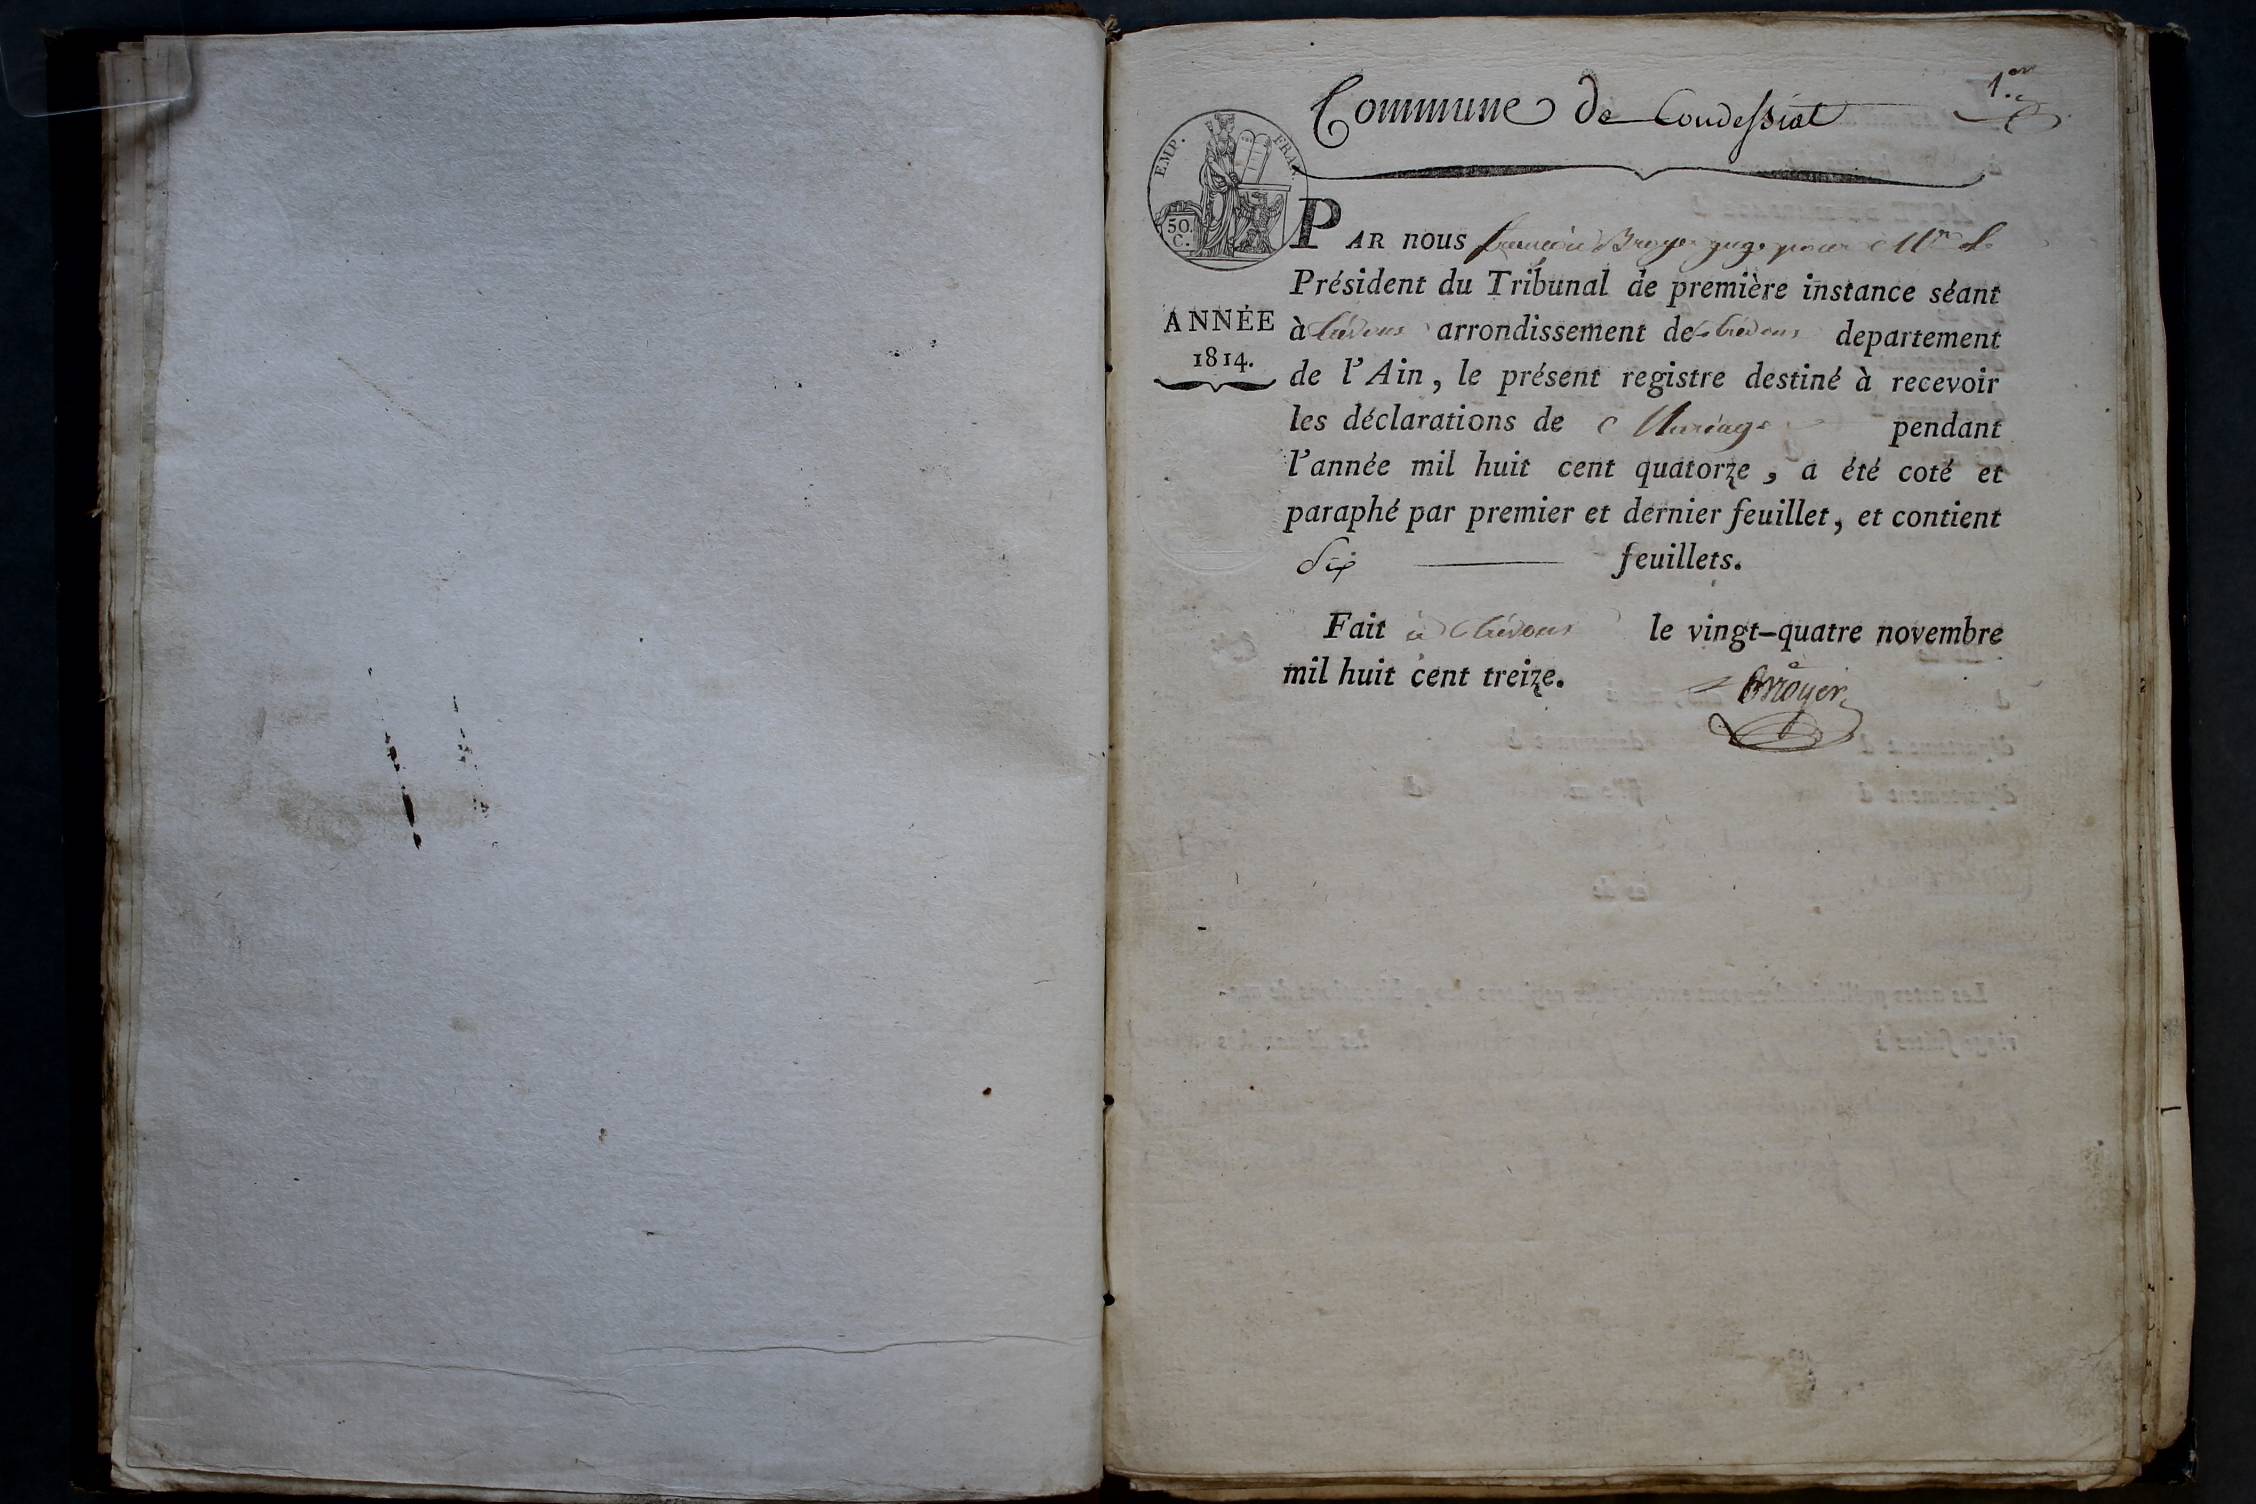 Commune de Condessiat
1.er
EMP. FRAN.
50.
C.
ANNÉE
1814.
PAR nous françois Broyer juge pour Mr. le
Président du Tribunal de première instance séant
à trévoux arrondissement de trévoux departement
de l'Ain, le présent registre destiné à recevoir
les déclarations de Mariage pendant
l'année mil huit cent quatorze, a été coté et
paraphé par premier et dernier feuillet, et contient
Six feuillets.
Fait à trévoux le vingt-quatre novembre
mil huit cent treize.
Broyer